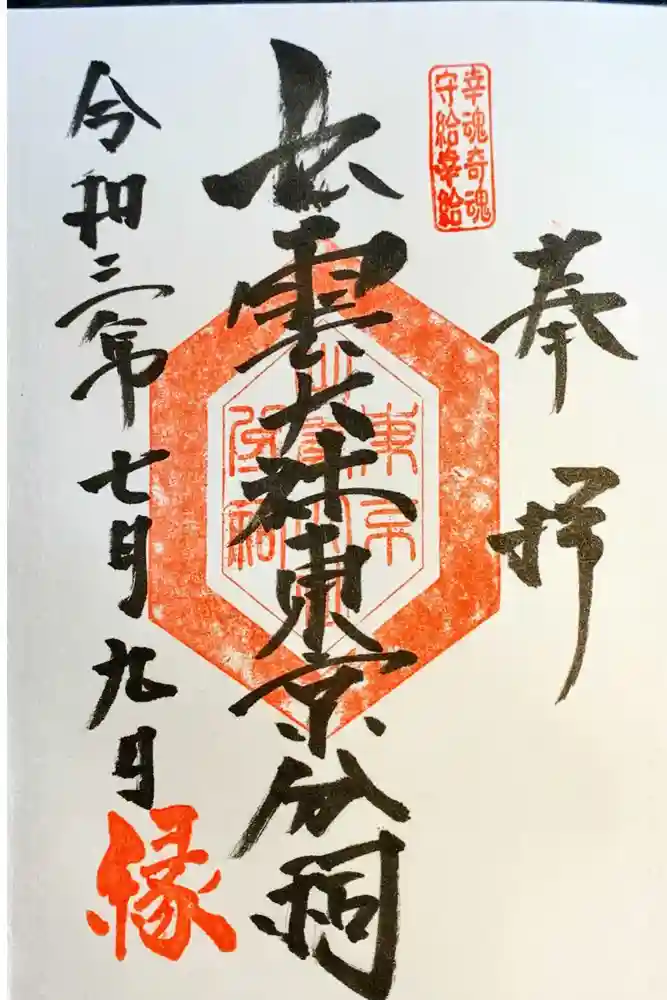 幸魂奇魂
守給幸給
奉拝
出雲大社東京分祠
令和三年
七月九日
縁